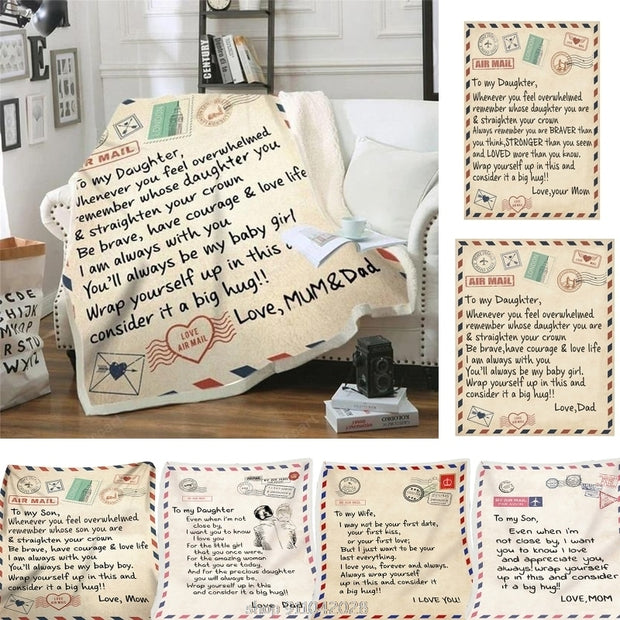 CENTURY
AIR MAIL
LONDON
To my Daughter,
Whenever you feel overwhelmed
remember whose daughter you
& straighten your crown
Be brave, have courage & love life
I am always with you
You'll always be my baby girl
Wrap yourself up in this a
consider it a big hug!!
Love, MUM&Dad
LOVE
AIR MAIL
AIR MAIL
To my Daughter,
Whenever you feel overwhelmed
remember whose daughter you are
& straighten your crown
Always remember you are BRAVER than
you think,STRONGER than you seem
and LOVED more than you know.
Wrap yourself up in this and
consider it a big hug!!
Love,your Mom
AIR MAIL
To my Daughter,
Whenever you feel overwhelmed
remember whose daughter you are
& straighten your crown
Be brave,have courage & love life
I am always with you
You'll always be my baby girl.
Wrap yourself up in this and
consider it a big hug!!
Love,Dad
AIR MAIL
To my Son,
Whenever you feel overwhelmed
remember whose son you are
& straighten your crown
Be brave, have courage & love life
I am always with you
You'll always be my baby boy.
Wrap yourself up in this and
consider it a big hug!!
Love, Mom
To my Daughter
Even when i'm not
close by,
I want you to know
I love you
For the little girl
that you once were,
For the amazing woman
that you are today,
And for the precious daughter
you will always be.
Wrap yourself up in this, and
consider it a big hug!!
Love, Dad
To my Wife,
I may not be your first date,
your first kiss,
or your first love;
But I just want to be your
last everything.
I love you, forever and always.
Always wrap yourself
up in this and consider it
a big hug!!
I LOVE YOU!
To my Son,
Even when i'm not
close by, I want
you to know I love
and appreciate you,
always! Wrap yourself
up in this and consider
it a big hug!!
LOVE, MOM